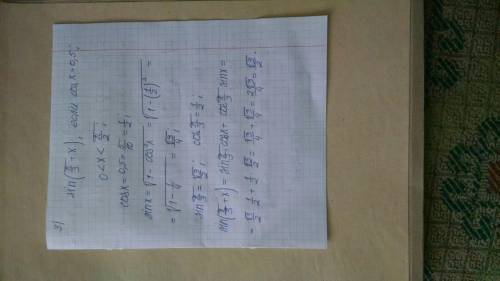 3)
sin(π/3 + x), если cos x = 0,5;
0 < x < π/2;
cos x = 0,5 = 5/10 = 1/2;
sin x = √(1 - cos²x) = √(1 - (1/2)²) =
= √(1 - 1/4) = √(3/4);
sin π/3 = √3/2; cos π/3 = 1/2;
sin(π/3 + x) = sin π/3 · cos x + cos π/3 · sin x =
= √3/2 · 1/2 + 1/2 · √3/2 = √3/4 + √3/4 = 2√3/4 = √3/2.